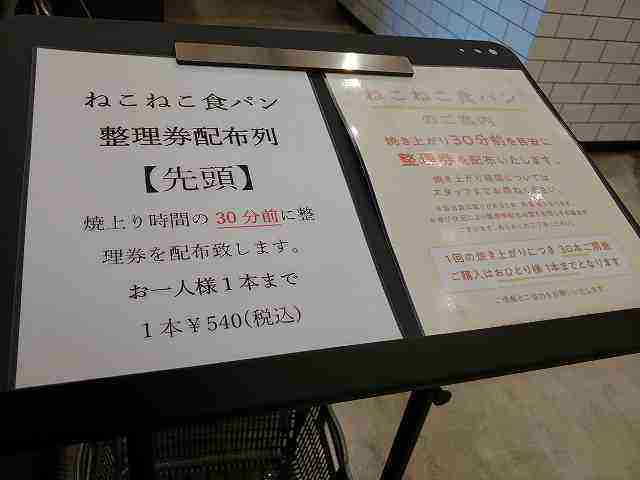 ねこねこ食パン
整理券配布列
【先頭】
焼上り時間の 30 分前に整
理券を配布致します。
お一人様1本まで
1本￥540(税込)
ねこねこ食パン
のご案内
焼き上がり30分前を目安に
整理券を配布いたします。
焼き上がり時間については
スタッフまでお尋ねください。
1回の焼き上がりにつき 30本ご用意
ご購入はおひとり様 1本までとなります
ご理解とご協力をお願いいたします